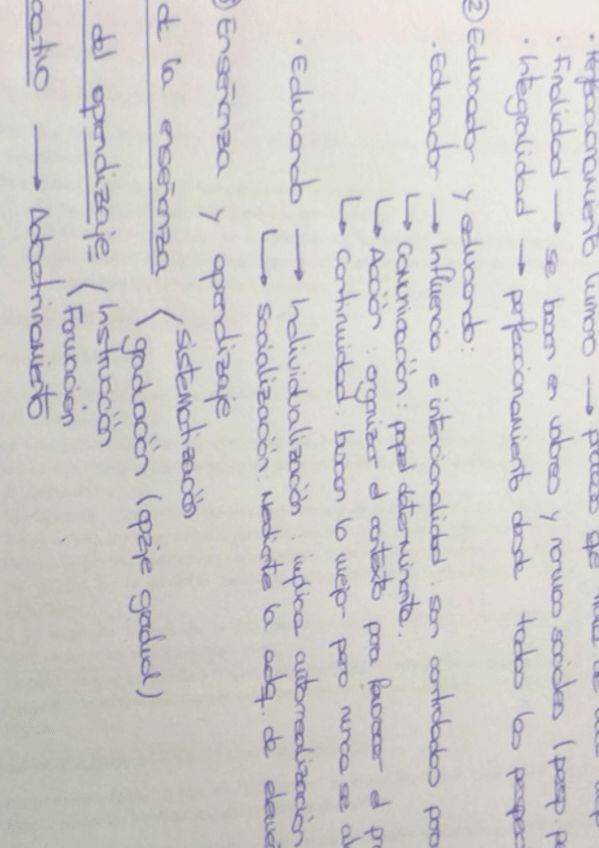 humano → proceso que
· Finalidad → se basan en valores y normas sociales (
· Integralidad → perfeccionamiento desde todas las
② Educador y educando:
· Educador → Influencia e intencionalidad: son controlados
↳ Comunicación: papel determinante.
↳ Acción: organizar el contexto para favorecer el
↳ Continuidad: buscan lo mejor pero nunca se
· Educando → Individualización: implica autorrealización
↳ Socialización: Mediante la adq. de
Enseñanza y aprendizaje
de la enseñanza ⟨ Sistematización
gradación (apzje gradual)
del aprendizaje ⟨ Instrucción
Formación
→ Adoctrinamiento